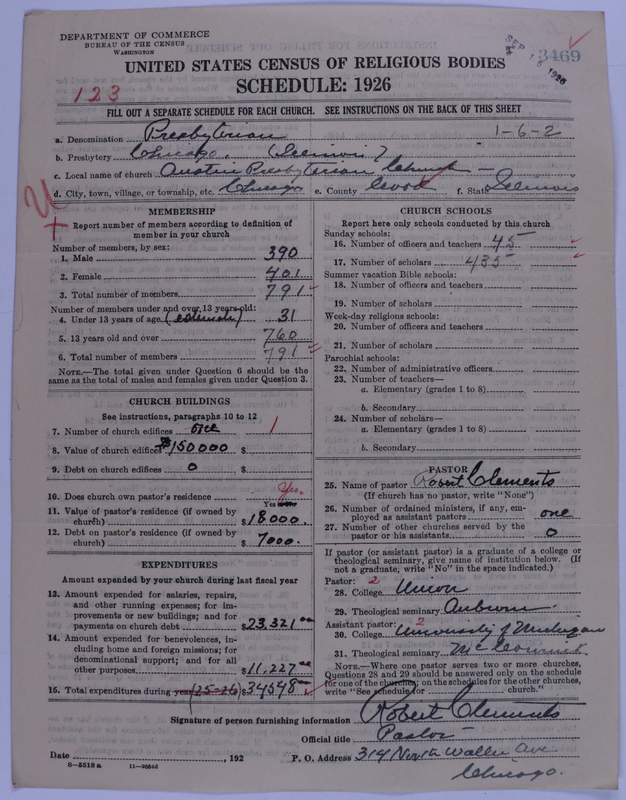 DEPARTMENT OF COMMERCE
BUREAU OF THE CENSUS
WASHINGTON
SEP 1926
3469
UNITED STATES CENSUS OF RELIGIOUS BODIES
SCHEDULE: 1926
123
FILL OUT A SEPARATE SCHEDULE FOR EACH CHURCH. SEE INSTRUCTIONS ON THE BACK OF THIS SHEET
a. Denomination Presbyterian 1-6-2
b. Presbytery Chicago. (Illinois)
c. Local name of church Austin Presbyterian Church
d. City, town, village, or township, etc. Chicago e. County Cook f. State Illinois
MEMBERSHIP
Report number of members according to definition of
member in your church
Number of members, by sex:
1. Male 390
2. Female 401
3. Total number of members 791
Number of members under and over 13 years old:
4. Under 13 years of age (estimate) 31
5. 13 years old and over 760
6. Total number of members 791
NOTE.—The total given under Question 6 should be the
same as the total of males and females given under Question 3.
CHURCH BUILDINGS
See instructions, paragraphs 10 to 12
7. Number of church edifices one 1
8. Value of church edifices $150000 $
9. Debt on church edifices 0 $
10. Does church own pastor's residence Yes.
Yes or no
11. Value of pastor's residence (if owned by
church) $18000.
12. Debt on pastor's residence (if owned by
church) $7000.
EXPENDITURES
Amount expended by your church during last fiscal year
13. Amount expended for salaries, repairs,
and other running expenses; for im-
provements or new buildings; and for
payments on church debt $23,321.00
14. Amount expended for benevolences, in-
cluding home and foreign missions; for
denominational support; and for all
other purposes $11,227.00
15. Total expenditures during year (25-26) $34548
CHURCH SCHOOLS
Report here only schools conducted by this church
Sunday schools:
16. Number of officers and teachers 45
17. Number of scholars 435
Summer vacation Bible schools:
18. Number of officers and teachers
19. Number of scholars
Week-day religious schools:
20. Number of officers and teachers
21. Number of scholars
Parochial schools:
22. Number of administrative officers
23. Number of teachers—
a. Elementary (grades 1 to 8)
b. Secondary
24. Number of scholars—
a. Elementary (grades 1 to 8)
b. Secondary
PASTOR
25. Name of pastor Robert Clements
(If church has no pastor, write "None")
26. Number of ordained ministers, if any, em-
ployed as assistant pastors one
27. Number of other churches served by the
pastor or his assistants 0
If pastor (or assistant pastor) is a graduate of a college or
theological seminary, give name of institution below. (If
not a graduate, write "No" in the space indicated.)
Pastor: 2
28. College Union
29. Theological seminary Auburn
Assistant pastor: 2
30. College University of Michigan
31. Theological seminary McCormick
NOTE.—Where one pastor serves two or more churches,
Questions 28 and 29 should be answered only on the schedule
for one of the churches; on the schedules for the other churches,
write "See schedule for church."
Signature of person furnishing information Robert Clements
Official title Pastor
Date , 192 P. O. Address 314 North Waller Ave
8—5518 a 11—9054d Chicago.